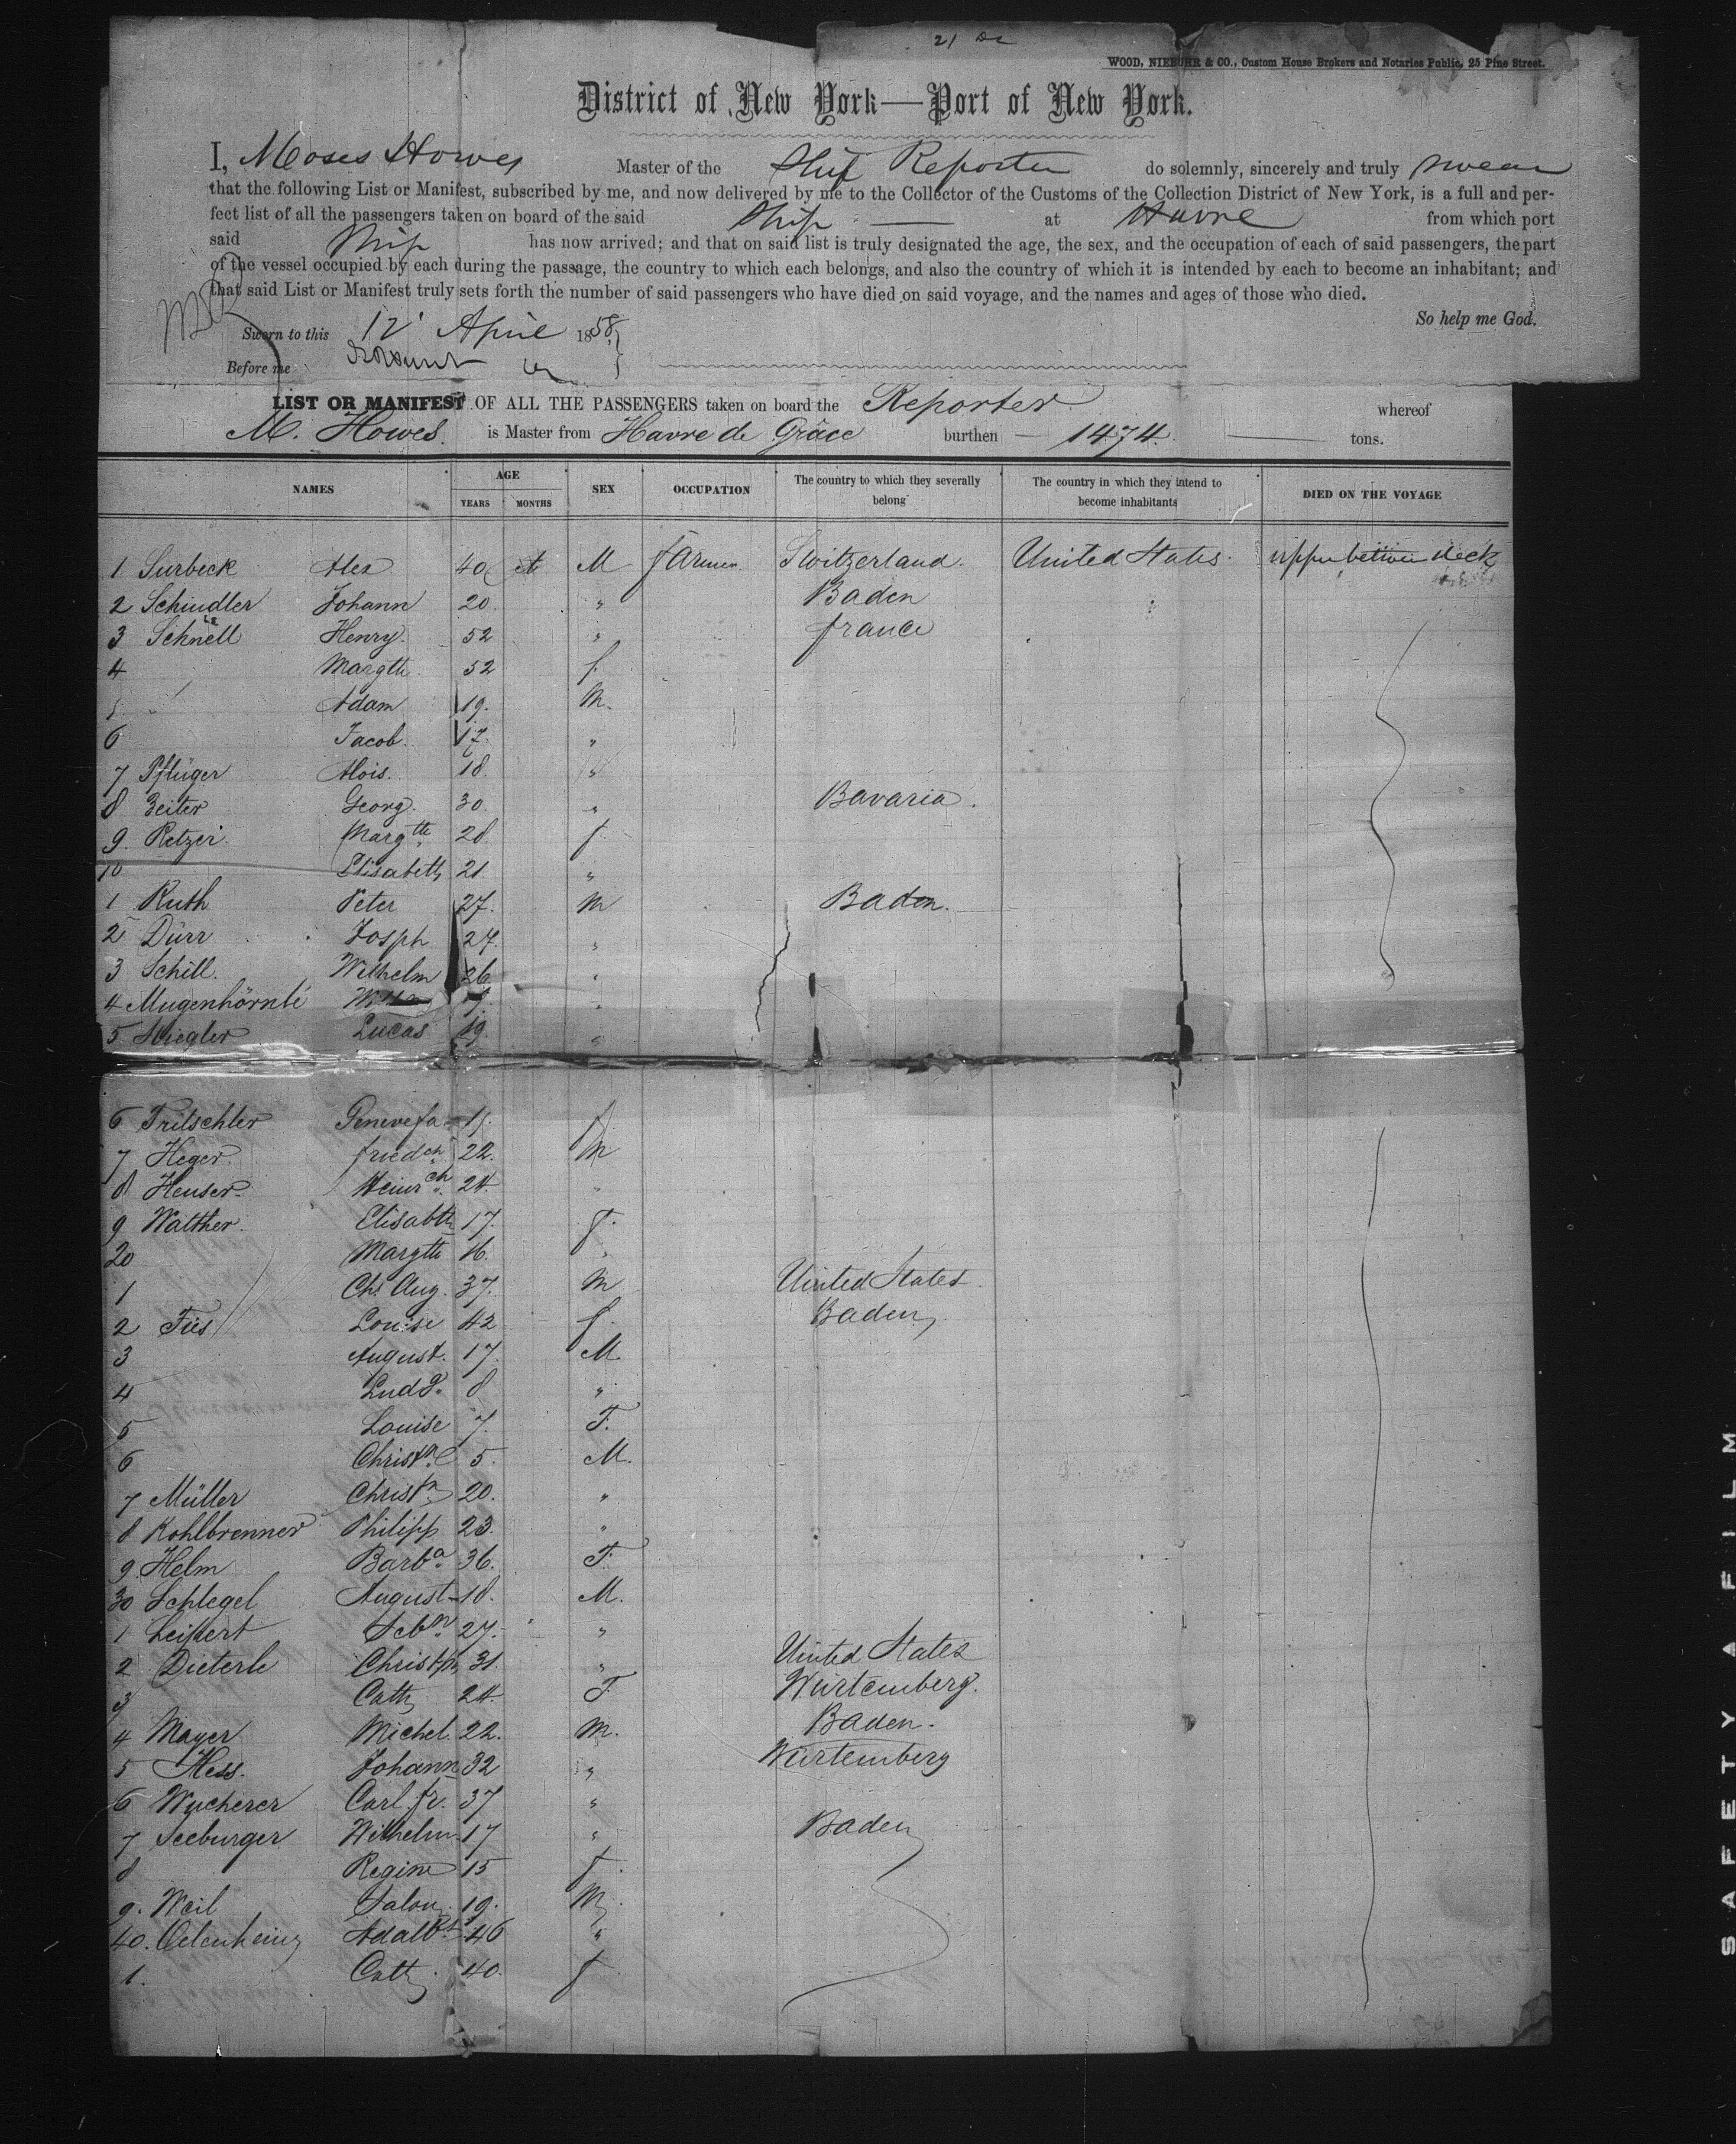 21
WOOD, NIEBUHR & CO., Custom House Brokers and Notaries Public, 25 Pine Street.
District of New York—Port of New York.
I, Moses Howes Master of the Ship Reporter do solemnly, sincerely and truly swear
that the following List or Manifest, subscribed by me, and now delivered by me to the Collector of the Customs of the Collection District of New York, is a full and per-
fect list of all the passengers taken on board of the said Ship — at Havre from which port
said Ship has now arrived; and that on said list is truly designated the age, the sex, and the occupation of each of said passengers, the part
of the vessel occupied by each during the passage, the country to which each belongs, and also the country of which it is intended by each to become an inhabitant; and
that said List or Manifest truly sets forth the number of said passengers who have died on said voyage, and the names and ages of those who died.
So help me God.
Sworn to this 12 April 1858
Before me
LIST OR MANIFEST OF ALL THE PASSENGERS taken on board the Reporter whereof
M. Howes. is Master from Havre de Grâce burthen — 1474. tons.
NAMES AGE YEARS MONTHS SEX OCCUPATION The country to which they severally belong The country in which they intend to become inhabitants DIED ON THE VOYAGE
1 Surbeck Alex 40 M farmer Switzerland. United States. upper between deck
2 Schindler Johann 20. " Baden
3 Schnell Henry. 52 " france
4 Margth. 52 f.
5 " Adam 19. M.
6 Jacob. 17. "
7 Pflüger Alois. 18. "
8 Zeiter Georg. 30. " Bavaria.
9. Retzer Margth. 28. f
10 Elisabeth 21. "
1 Ruth Peter 27. M Baden.
2 Dürr Josph 27. "
3 Schill. Wilhelm 26 "
4 "
5 Lucas 19. "
6 Tritschler Genevefa f
7 Heger. friedch. 22. M
8 Heuser. Heinrch. 24. "
9 Walther. Elisabth 17. f.
20 Margth 16. "
1 Chs. Aug. 37. M United States.
2 Fies Louise 42 f. Baden
3 August. 17. M
4 Ludg. 8 "
5 Louise 7. F.
6 Christn. 5. M.
7 Müller Christn. 20. "
8 Kohlbrenner Philipp 23. "
9. Helm Barba. 36. F
30 Schlegel August 18. M.
1 Leippert Sebn. 27. "
2 Dieterle Christn 31. " United States
3 Cath 24. F Würtemberg.
4 Mayer Michel. 22. M. Baden.
5 Hess. Johann 32 " Würtemberg
6 Wucherer Carl fr. 37 "
7 Seeburger Wilhelm 17 " Baden
8 Regine 15 f.
9. Weil Salom. 19. M
40. Oelenheinz Adalbt 46 "
1. Cath. 40. f
SAFETY FILM